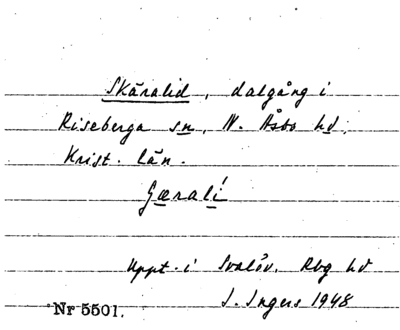 Skäralid, dalgång i
Riseberga sn, N. Åsbo hd,
Krist. län.
Uppt. i Svalöv, Rbg hd
I. Ingers 1948
Nr 5501.